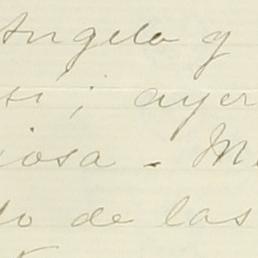 Angelo y
si; ayer
iosa. M
do de las